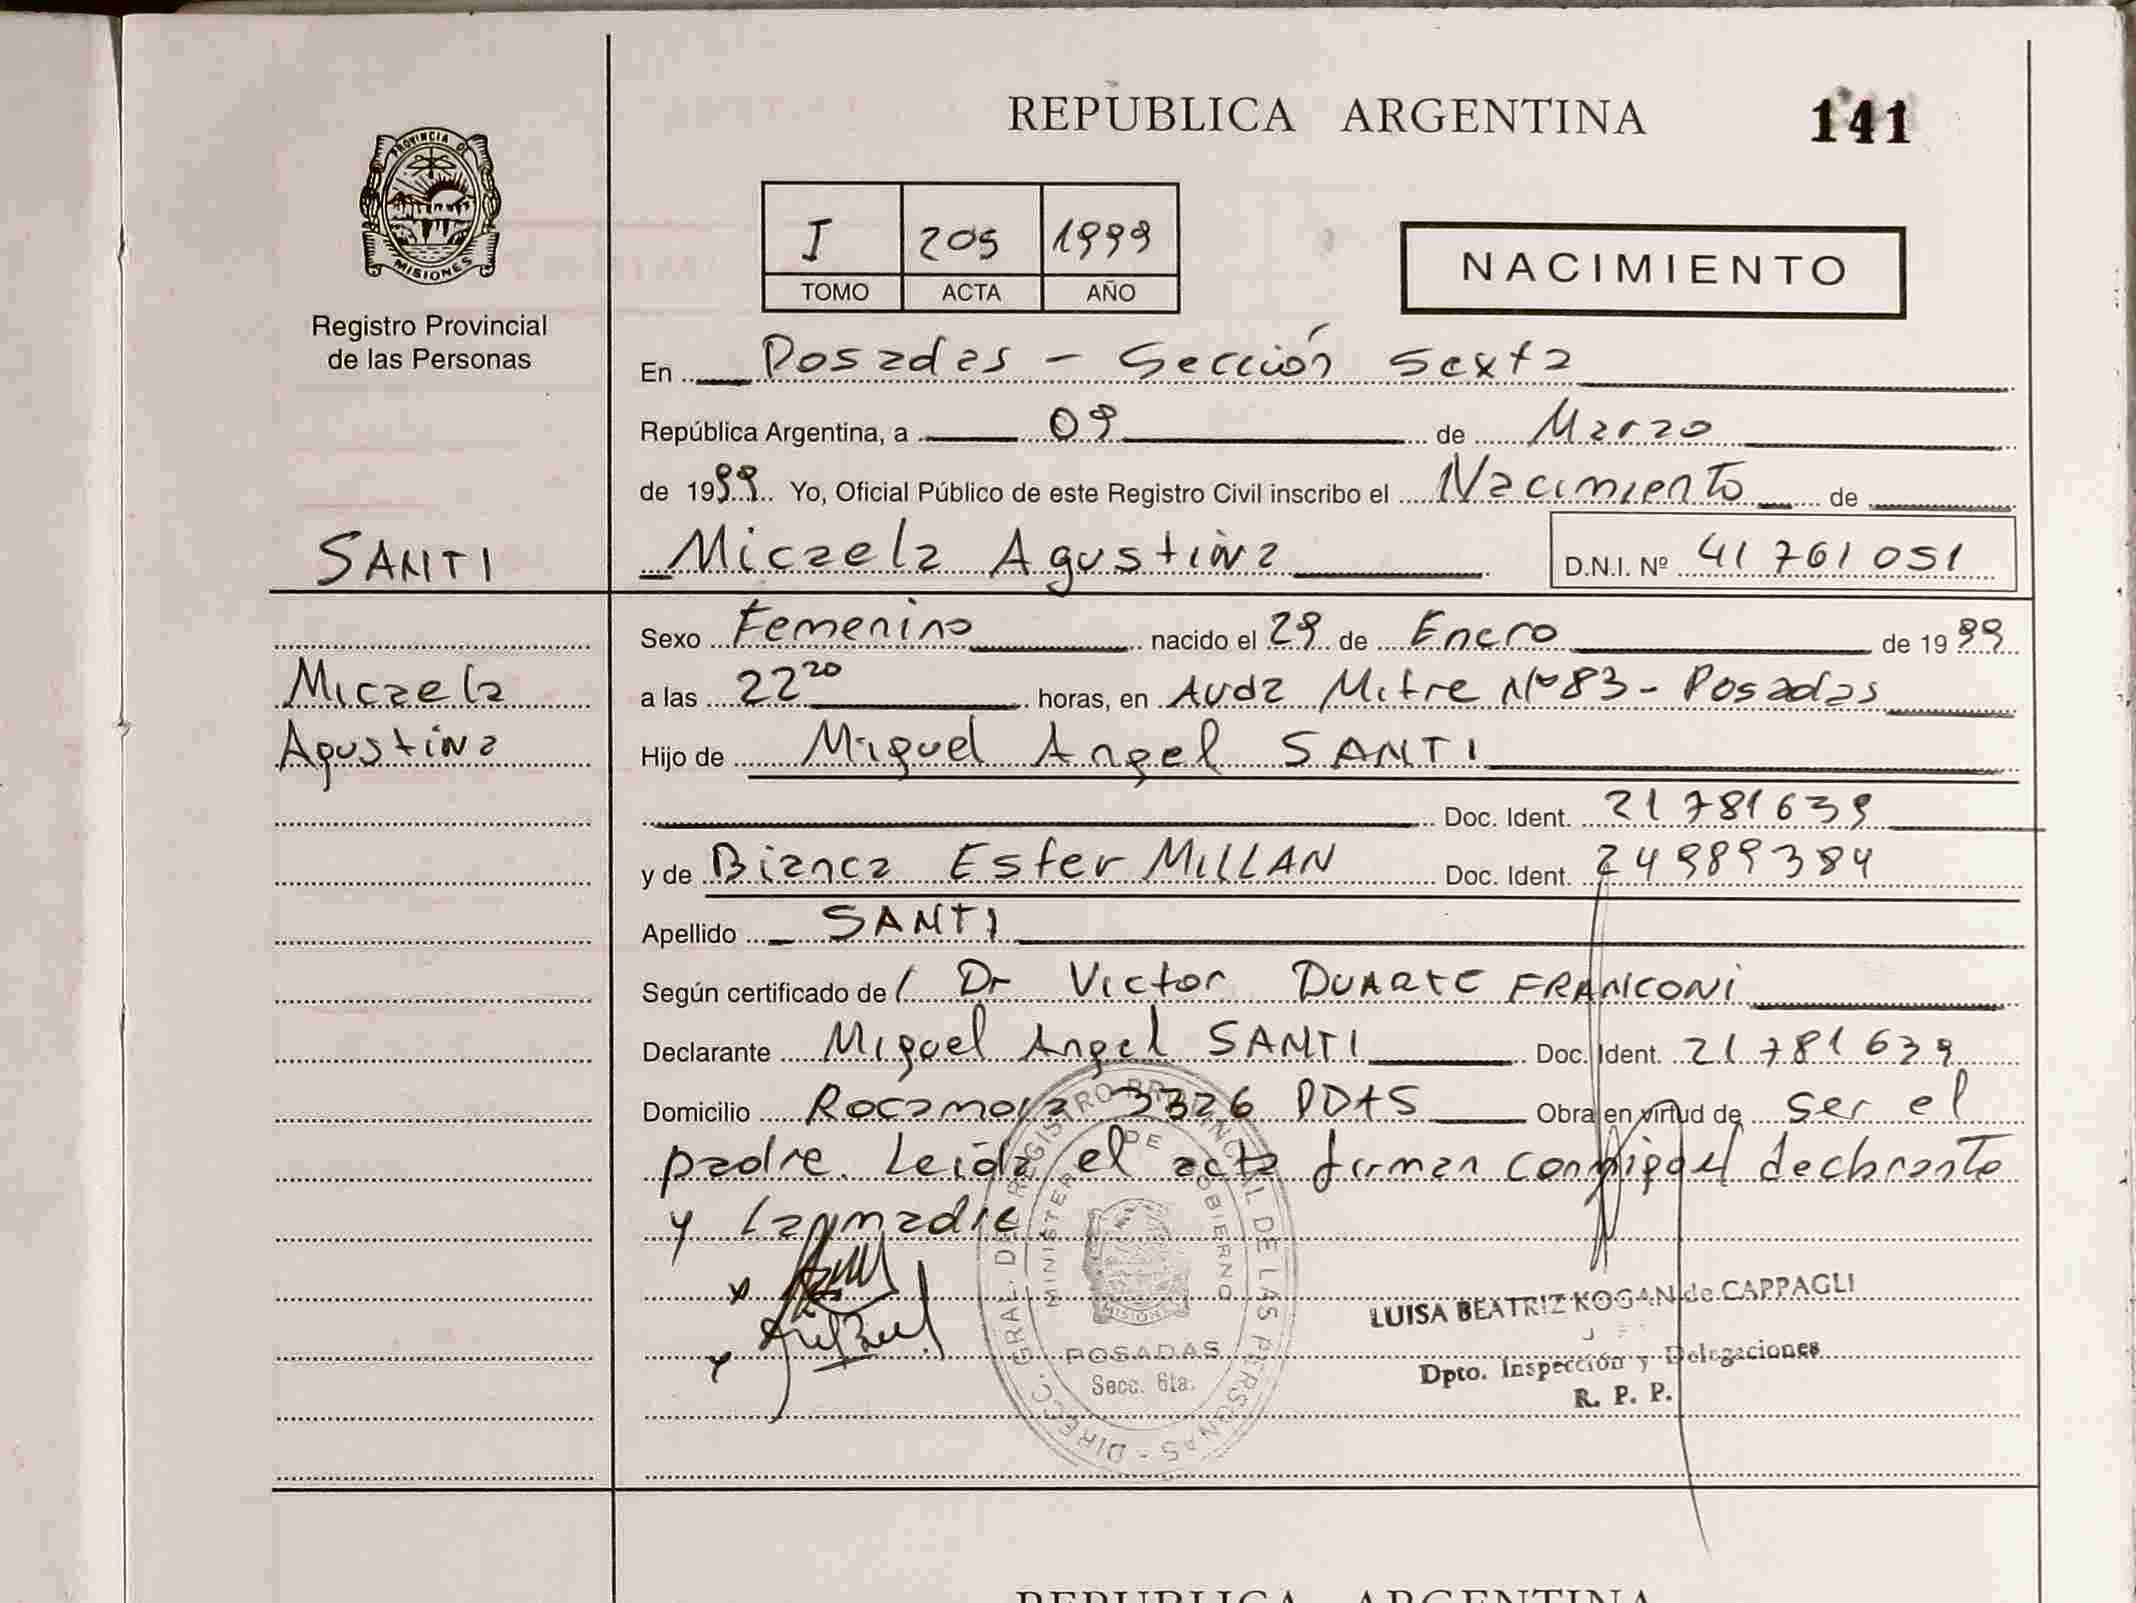 REPUBLICA ARGENTINA
141
PROVINCIA DE
MISIONES
Registro Provincial
de las Personas
I 205 1999
TOMO ACTA AÑO
NACIMIENTO
En Posadas - Sección Sexta
República Argentina, a 09 de Marzo
de 1999 Yo, Oficial Público de este Registro Civil inscribo el Nacimiento de
SANTI
Micaela Agustina D.N.I. Nº 41 761 051
Sexo Femenino nacido el 29 de Enero de 1999
Micaela
Agustina
a las 22 20 horas, en Avda Mitre Nº 83 - Posadas
Hijo de Miguel Angel SANTI
Doc. Ident. 21 781 639
y de Bianca Ester MILLAN Doc. Ident. 24989384
Apellido SANTI
Según certificado de / Dr Victor DUARTE FRANCONI
Declarante Miguel Angel SANTI Doc. Ident. 21 781 639
Domicilio Rocamora 3326 PDAS Obra en virtud de ser el
padre. Leída el acta firman conmigo el declarante
y la madre
DIRECC. GRAL. DEL REGISTRO PROVINCIAL DE LAS PERSONAS
MINISTERIO DE GOBIERNO
MISIONES
POSADAS
Secc. 6ta.
LUISA BEATRIZ KOGAN de CAPPAGLI
Dpto. Inspección y Delegaciones
R. P. P.
REPUBLICA ARGENTINA